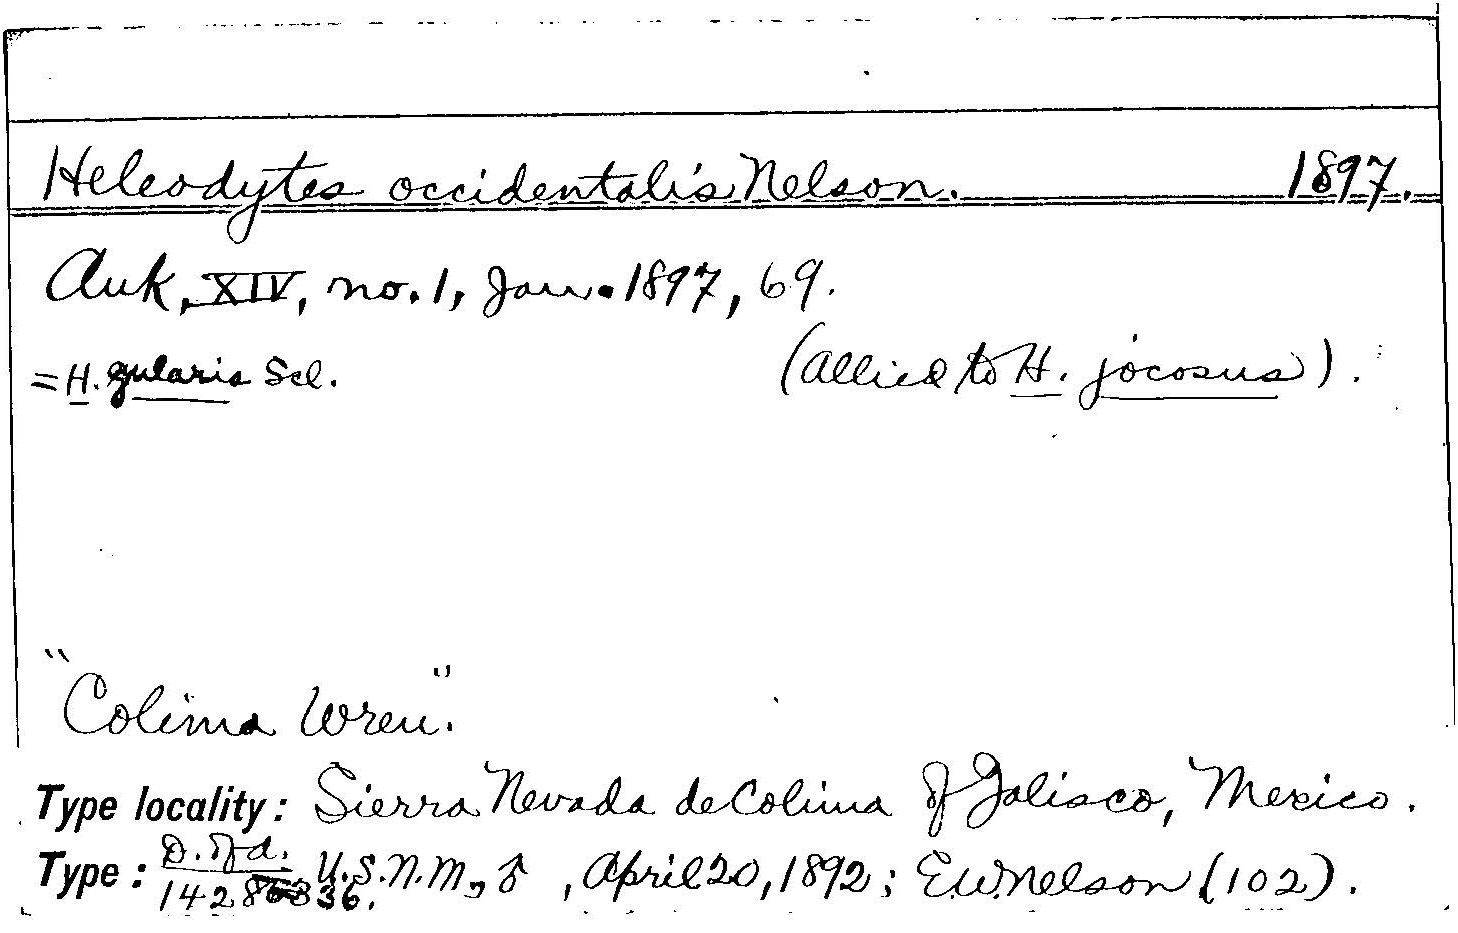 Heleodytes occidentalis Nelson. 1897.
Auk, XIV, no. 1, Jan. 1897, 69.
= H. gularis Scl. (allied to H. jocosus).
"Colima Wren".
Type locality: Sierra Nevada de Colima of Jalisco, Mexico.
Type: D. of A. U.S.N.M., ♂, April 20, 1892; E.W. Nelson (102).
142 36.